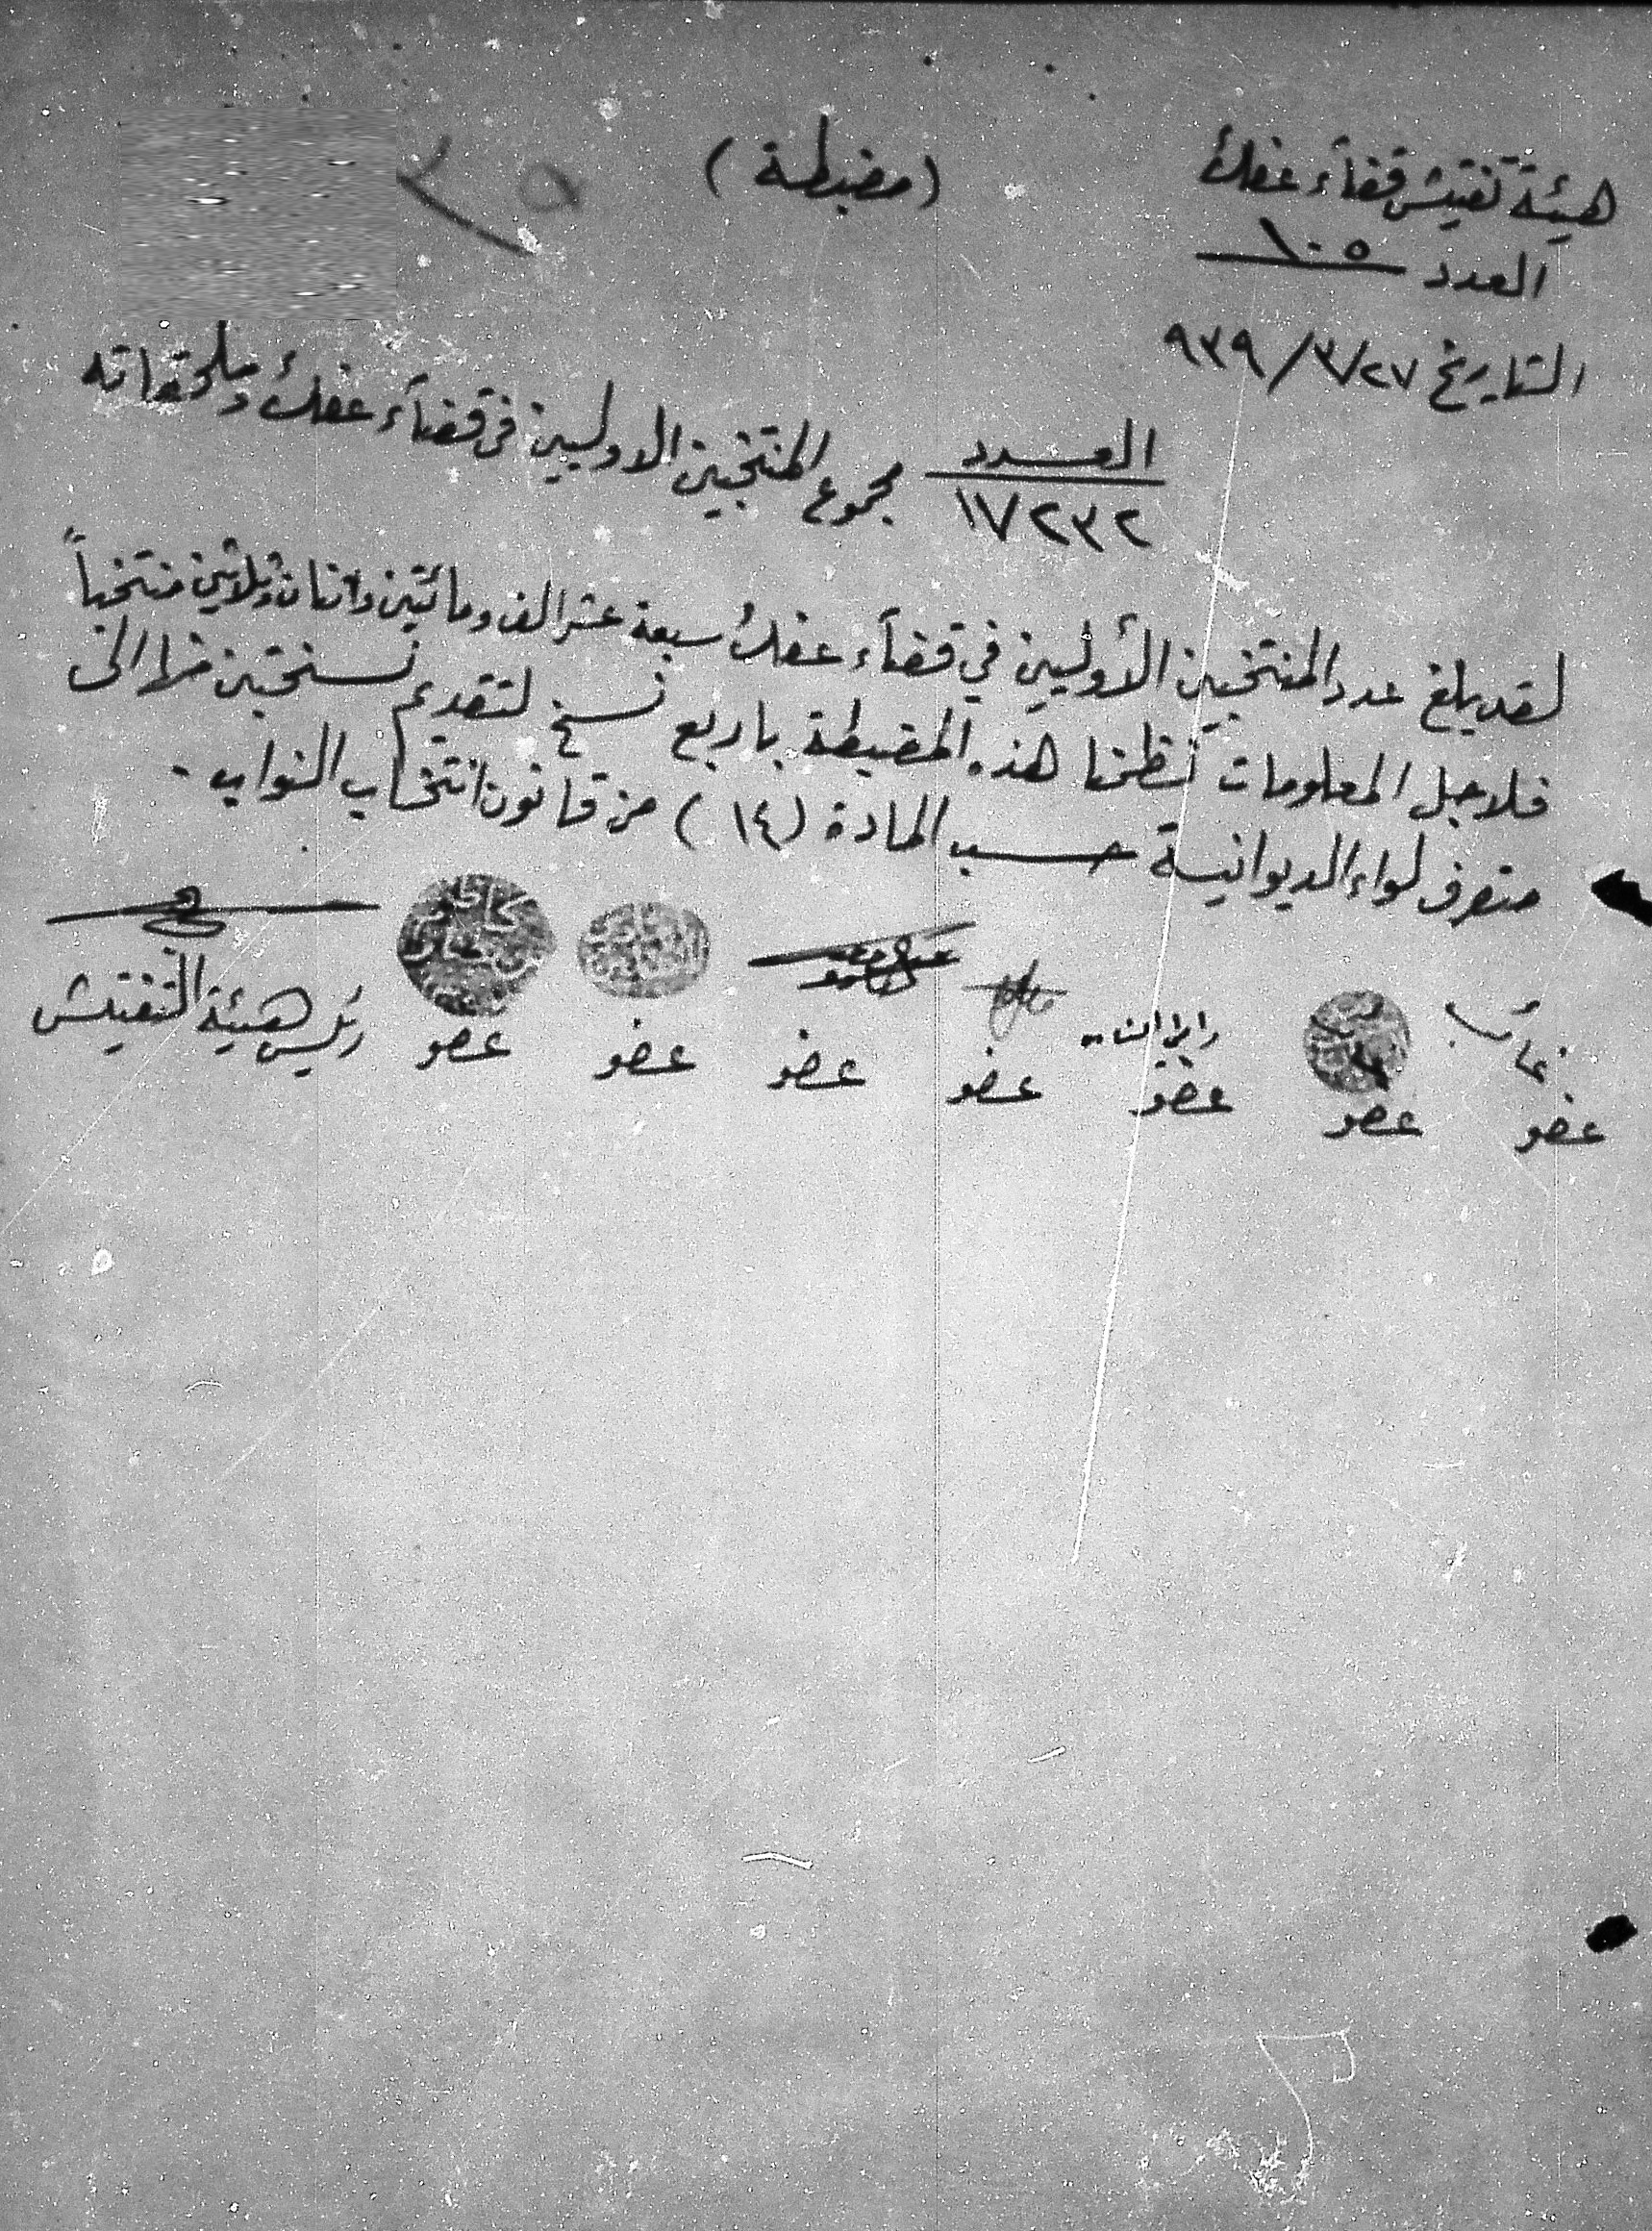 هيئة تفتيش قضاء عفك
(مضبطة)
العدد ١٠٥
التاريخ ٩٣٩/٣/٢٧
العدد
١٧٢٣٢
مجموع المنتخبين الاوليين في قضاء عفك وملحقاته
لقد يبلغ عدد المنتخبين الأوليين في قضاء عفك سبعة عشر الف ومائتين واثنان وثلاثين منتخباً
فلاجل المعلومات نظمنا هذه المضبطة باربع نسخ لتقديم نسختين منها الى
متصرف لواء الديوانية حسب المادة (١٤) من قانون انتخاب النواب .
غائب
عضو
عضو
عضو
عضو
عضو
عضو
عضو
رئيس هيئة التفتيش